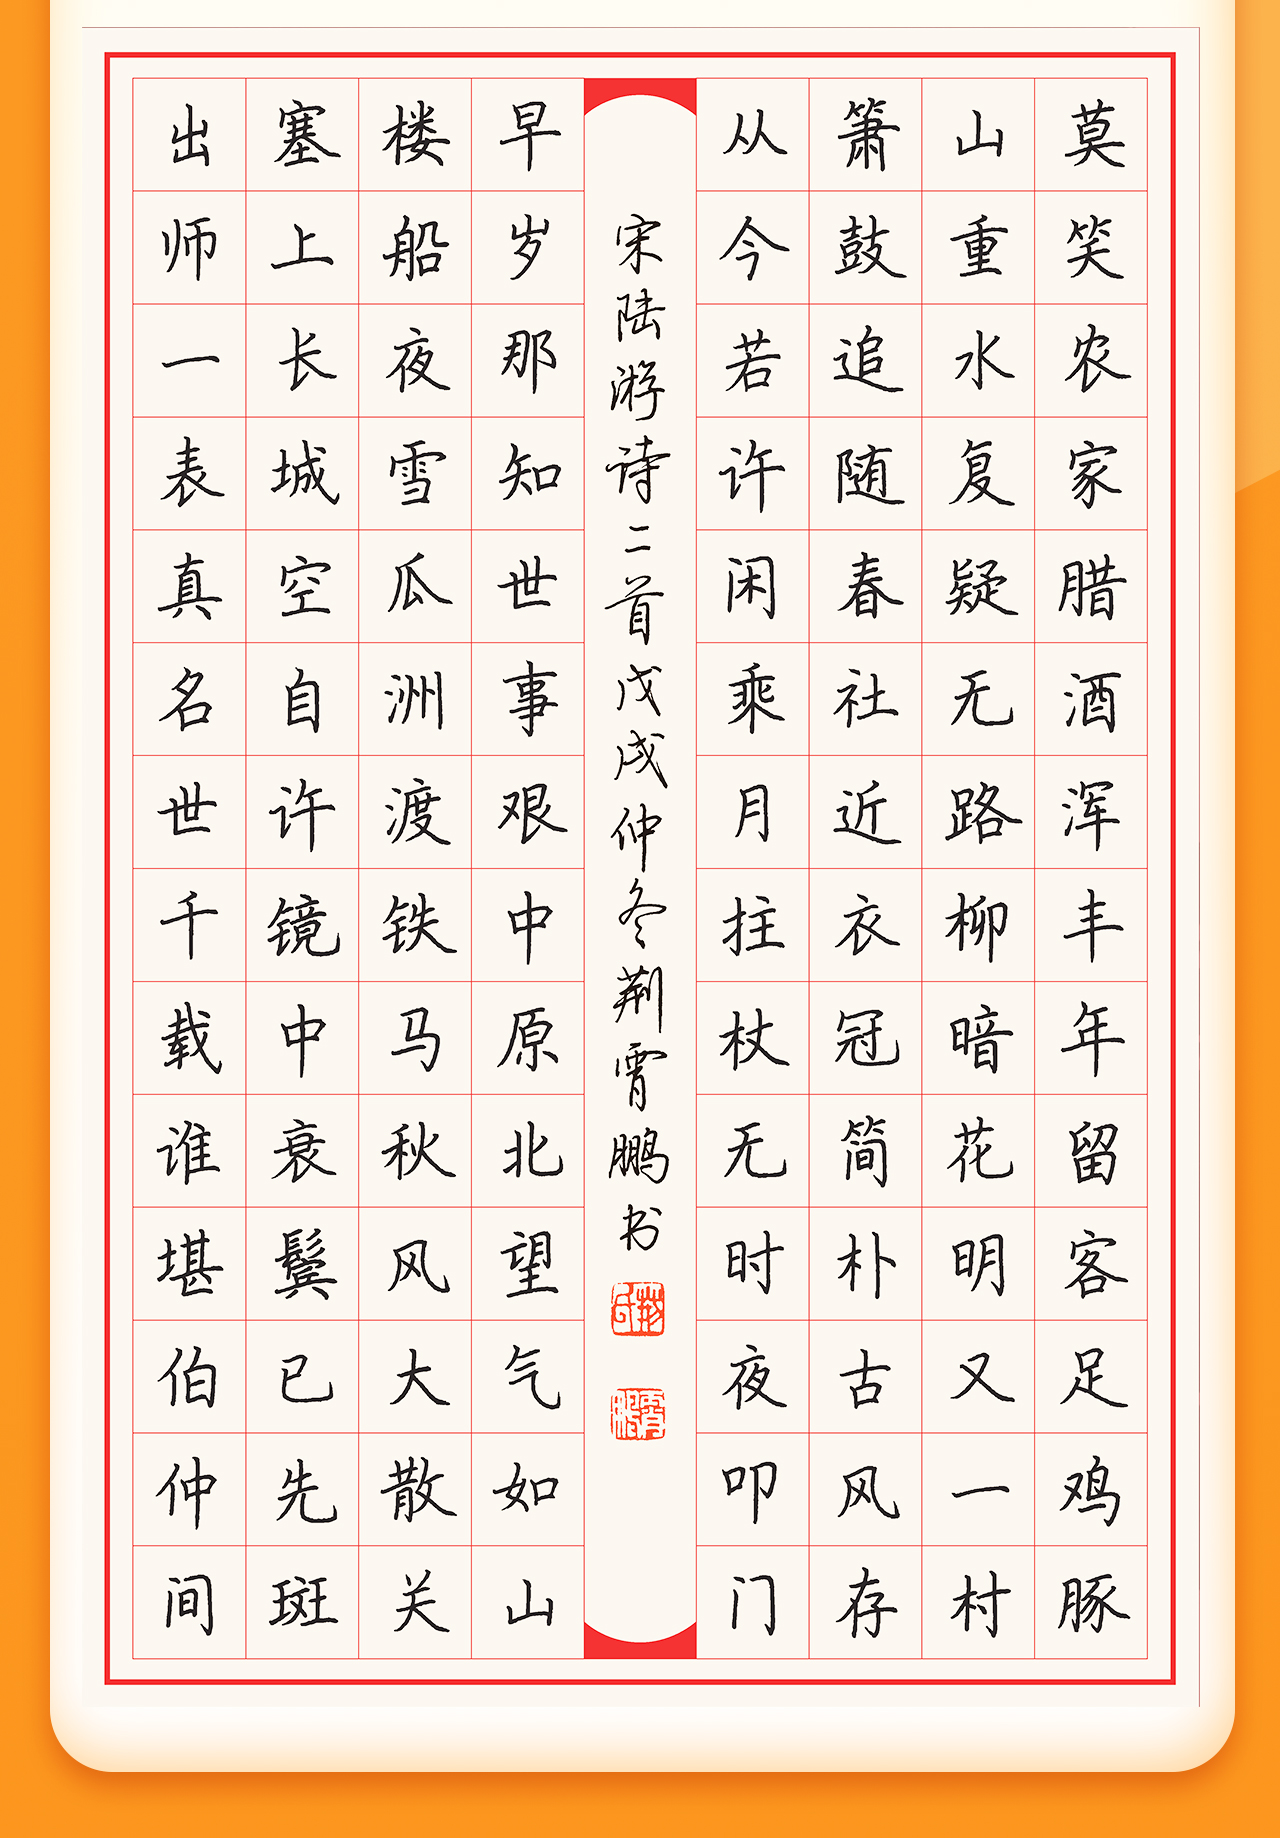 莫笑农家腊酒浑丰年留客足鸡豚
山重水复疑无路柳暗花明又一村
箫鼓追随春社近衣冠简朴古风存
从今若许闲乘月拄杖无时夜叩门
宋陆游诗二首戊戌仲冬荆霄鹏书
荆氏
霄鹏
早岁那知世事艰中原北望气如山
楼船夜雪瓜洲渡铁马秋风大散关
塞上长城空自许镜中衰鬓已先斑
出师一表真名世千载谁堪伯仲间